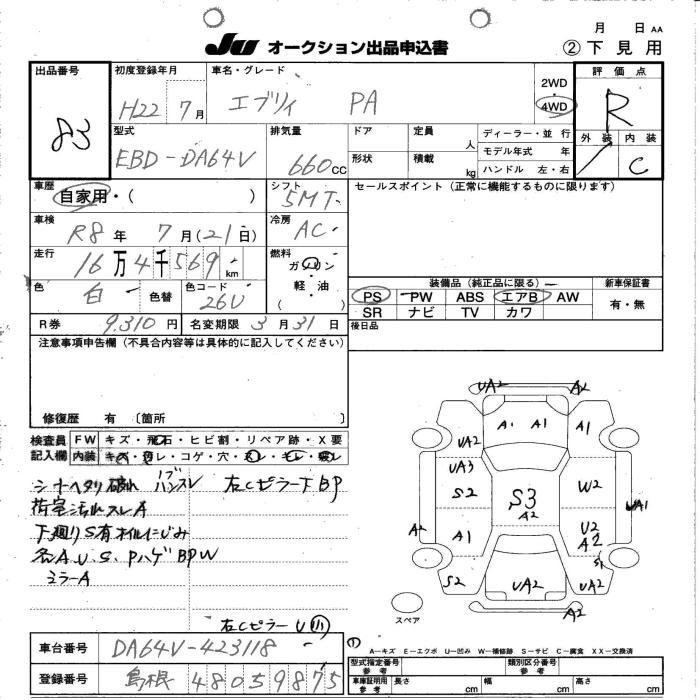 月 日 AA
JU オークション出品申込書
② 下見用
出品番号 83
初度登録年月 H22 7月
車名・グレード エブリィ PA
2WD
4WD
評価点 R
外装 内装 C
型式 EBD-DA64V
排気量 660CC
ドア
形状
定員 人
積載 kg
ディーラー・並行
モデル年式 年
ハンドル 左・右
車歴 自家用・( )
シフト 5MT
セールスポイント(正常に機能するものに限ります)
車検 R8年 7月(21日)
冷房 AC
走行 16万4千569km
燃料 ガソリン
・
軽・油
( )
色 白 色替 色コード 26U
装備品(純正品に限る) 新車保証書
PS PW ABS エアB AW 有・無
SR ナビ TV カワ
R券 9,310円 名変期限 3月31日
後日品
注意事項申告欄(不具合内容等は具体的に記入してください)
修復歴 有 〔箇所 〕
検査員 FW キズ・飛石・ヒビ割・リペア跡・X要
記入欄 内装 キズ・汚レ・コゲ・穴・スレ・キレ・破レ
シートヘタリ破れ 右Cピラー下BP
荷室汚れスレA
下廻りS有オイルにじみ
各A.U.S.PハゲBPW
ミラーA
右CピラーU
UA2 A2
A1 A1 A1
UA2
UA3
S2 S3 W2
A2 UA1
A2 A1 U2
A2
S1
S2 UA2 UA2
A2
スペア
車台番号 DA64V-423118
登録番号 島根 480 59875
① A-キズ E-エクボ U-凹み W-補修跡 S-サビ C-腐食 XX-交換済
型式指定番号 参考 類別区分番号 参考
車庫証明用 参考 長さ cm 幅 cm 高さ cm